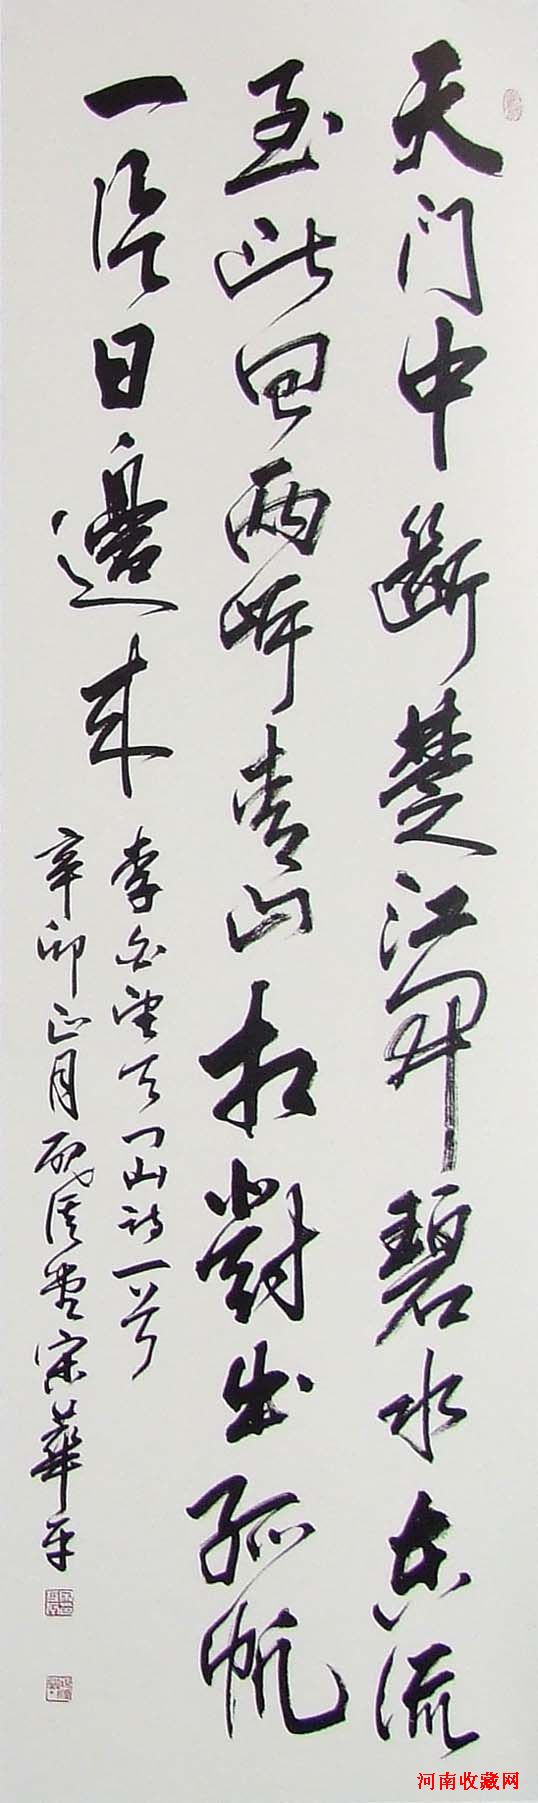 天门中断楚江开碧水东流
至此回两岸青山相對出孤帆
一片日邊来
李白望天门山诗一首
辛卯正月 宋華平
河南收藏网